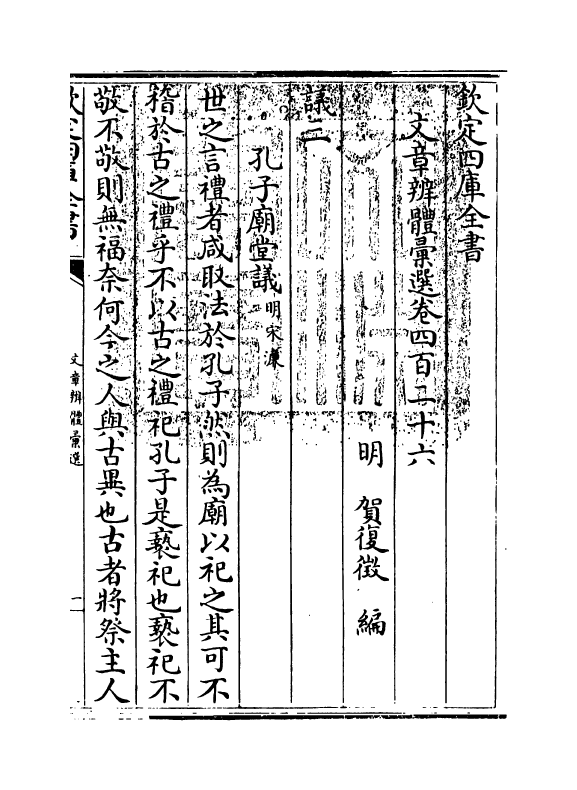 欽定四庫全書
文章辨體彚選卷四百二十六
明 賀復徵 編
議二
孔子廟堂議明宋濂
世之言禮者咸取法於孔子然則為廟以祀之其可不
稽於古之禮乎不以古之禮祀孔子是褻祀也褻祀不
敬不敬則無福奈何今之人與古異也古者將祭主人
欽定四庫全書
文章辨體彚選